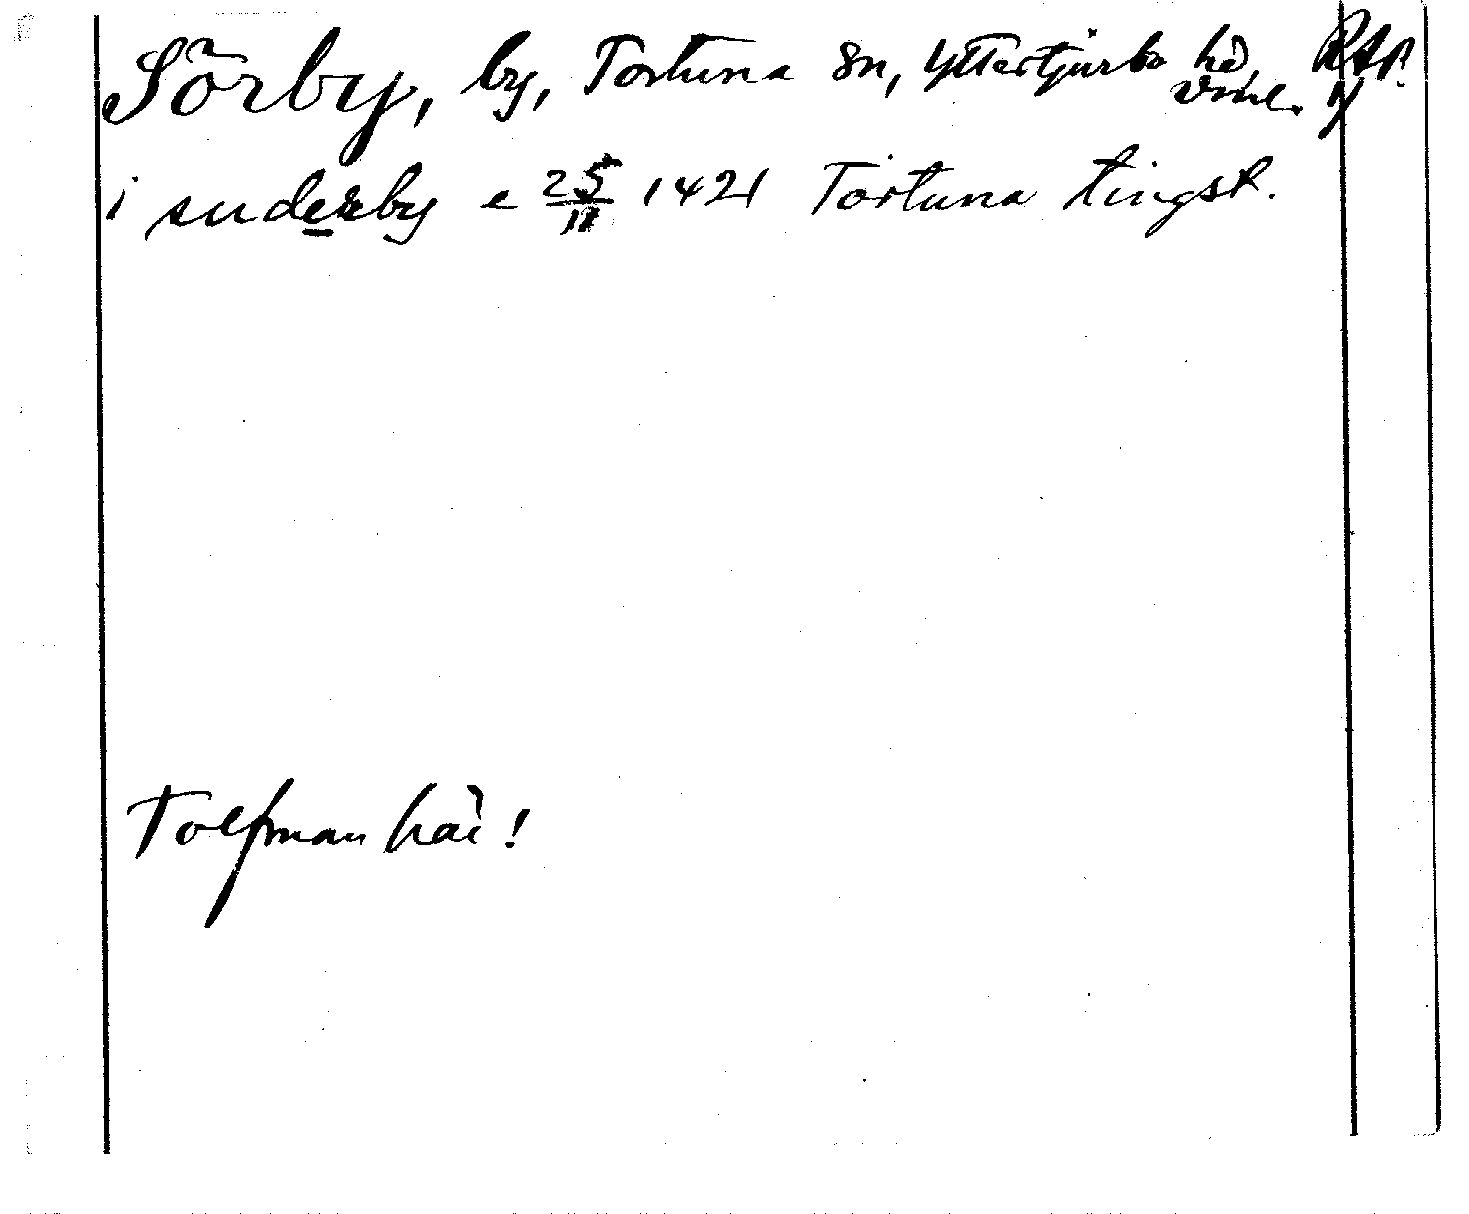 Sörby, by, Tortuna sn, Yttertjurbo hd, RAp.
Vml.
i suderby e 25/11 1421 Tortuna tingst.
Tolfman här!